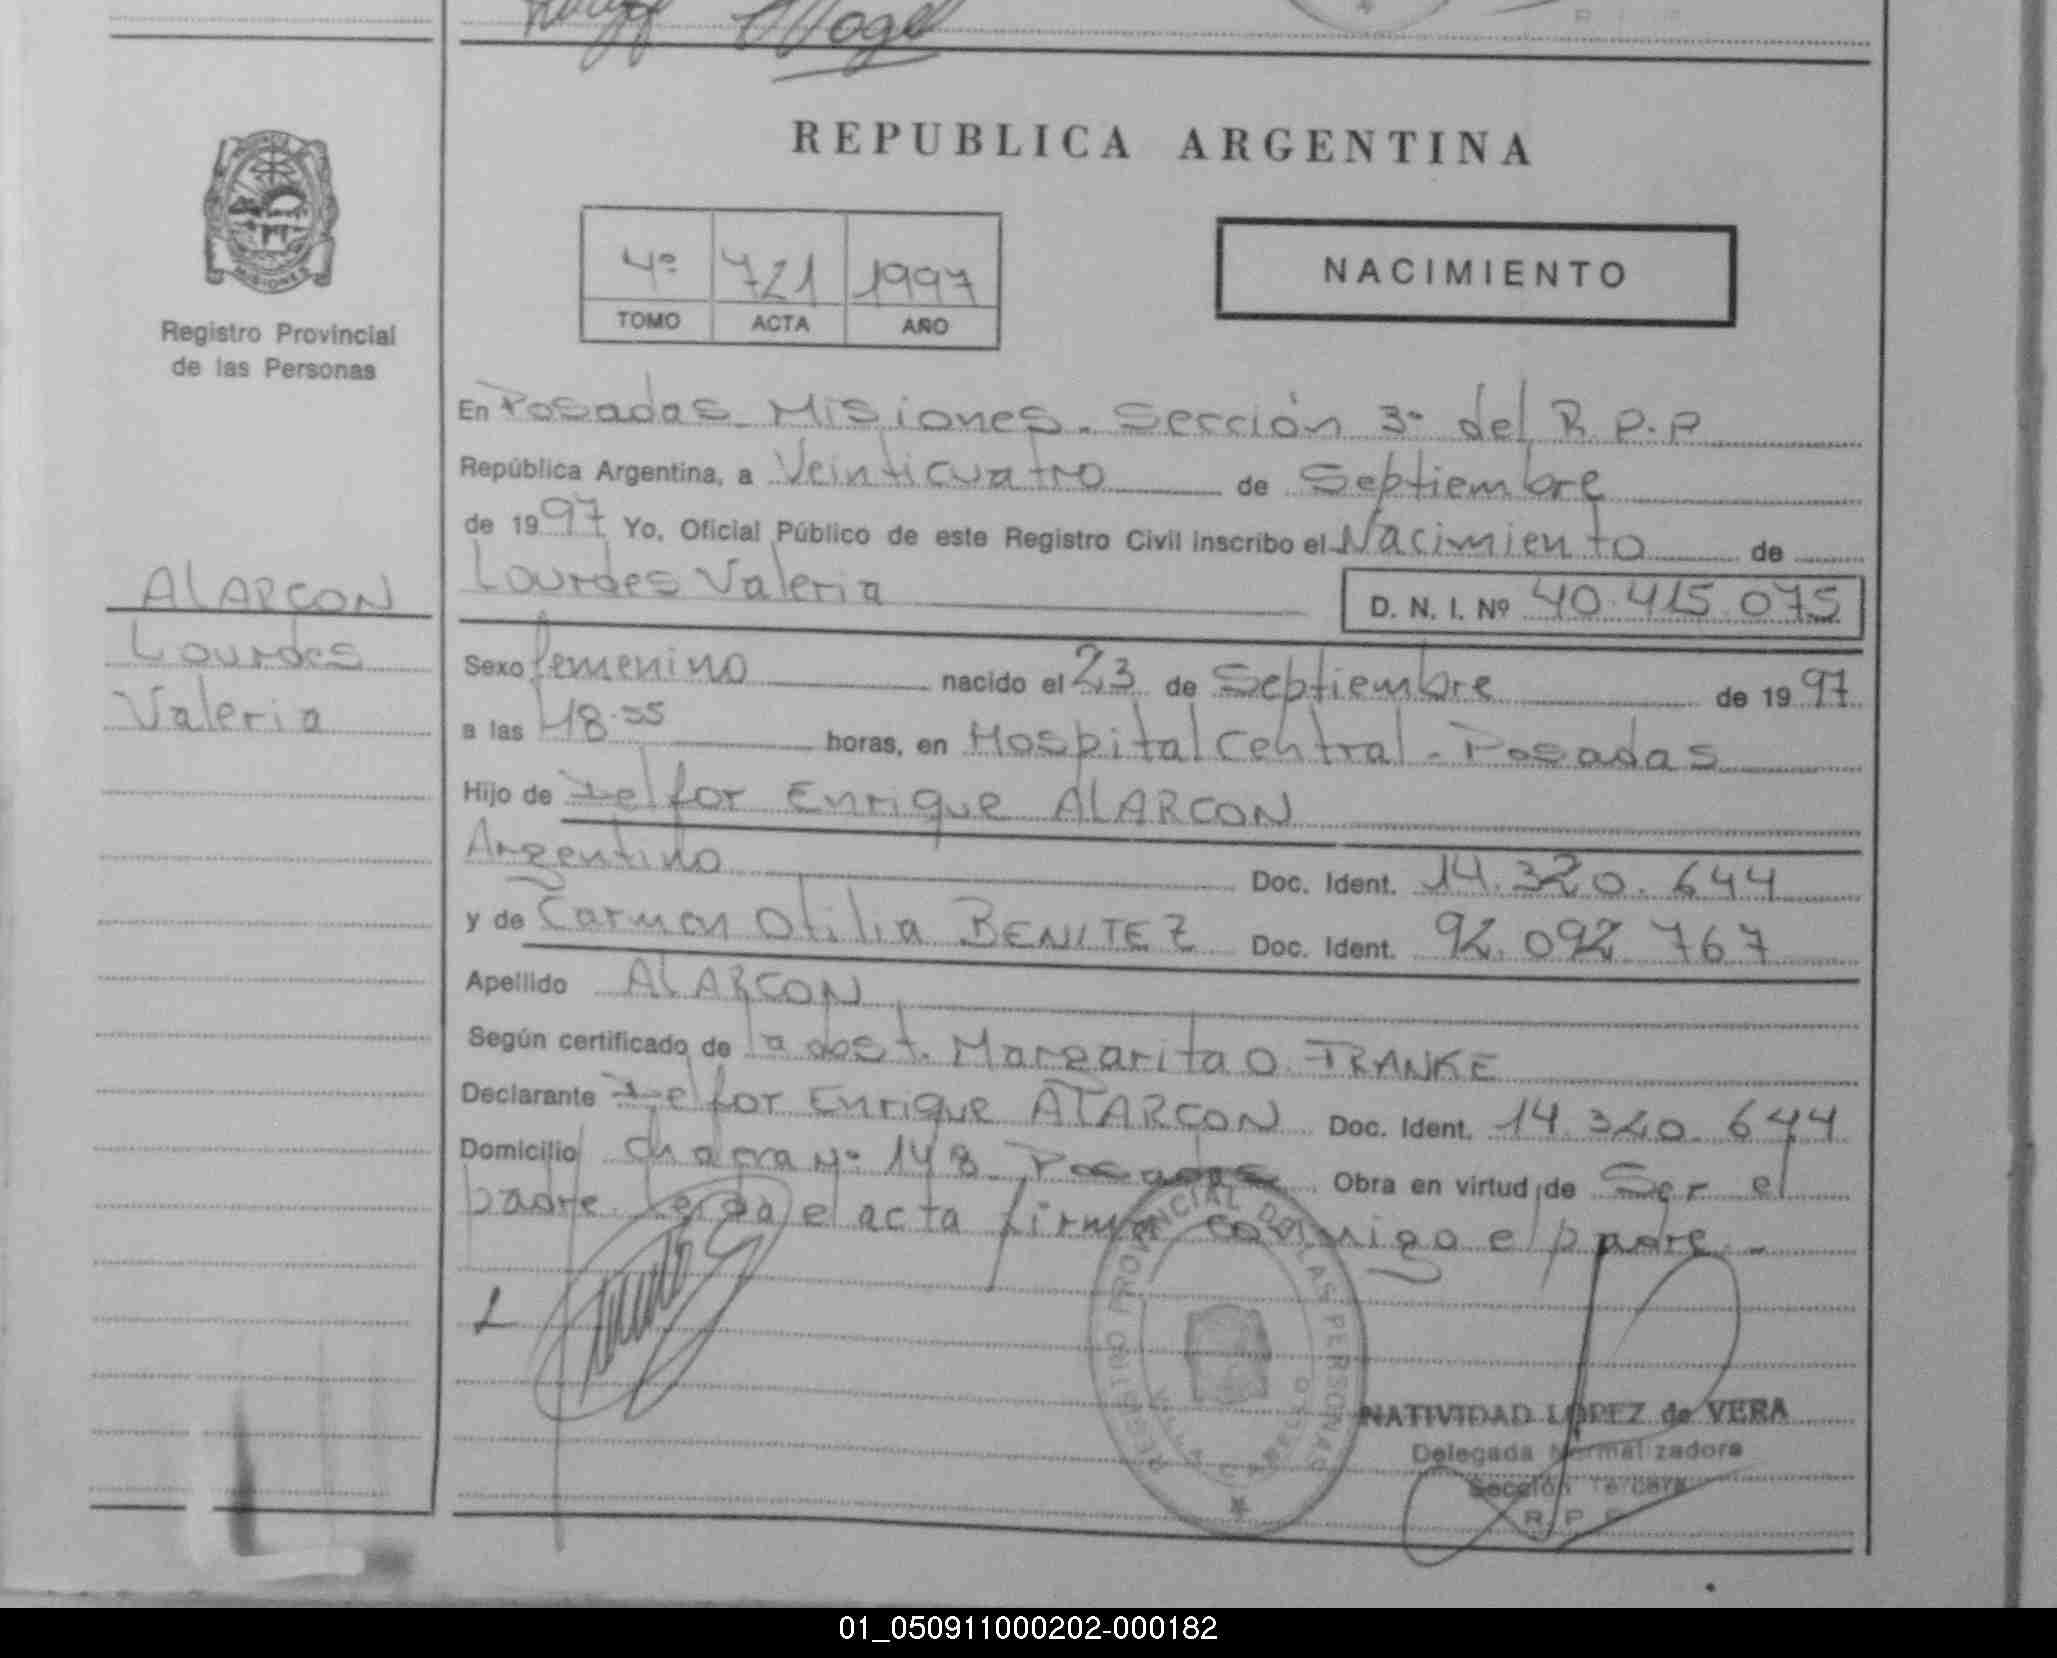 Vogel
REPUBLICA ARGENTINA
4º 721 1997
TOMO ACTA AÑO
NACIMIENTO
MISIONES
Registro Provincial
de las Personas
ALARCON
Lourdes
Valeria
En Posadas Misiones. Sección 3º del R.P.P
República Argentina, a Veinticuatro de Septiembre
de 1997 Yo, Oficial Público de este Registro Civil inscribo el Nacimiento de
Lourdes Valeria D. N. I. Nº 40.415.075
Sexo femenino nacido el 23 de Septiembre de 1997
a las 18.55 horas, en Hospital Central - Posadas
Hijo de Delfor Enrique ALARCON
Argentino Doc. Ident. 14.320.644
y de Carmen Otilia BENITEZ Doc. Ident. 92.092.767
Apellido ALARCON
Según certificado de la obst. Margarita O. TRANKE
Declarante Delfor Enrique ALARCON Doc. Ident. 14.320.644
Domicilio Chacra Nº 148 Posadas Obra en virtud de Ser el
padre. Leida el acta firma conmigo el padre. -
REGISTRO PROVINCIAL DE LAS PERSONAS
VILLA CABELLO
NATIVIDAD LOPEZ de VERA
Delegada Normalizadora
Sección Tercera
R. P. P.
01_050911000202-000182